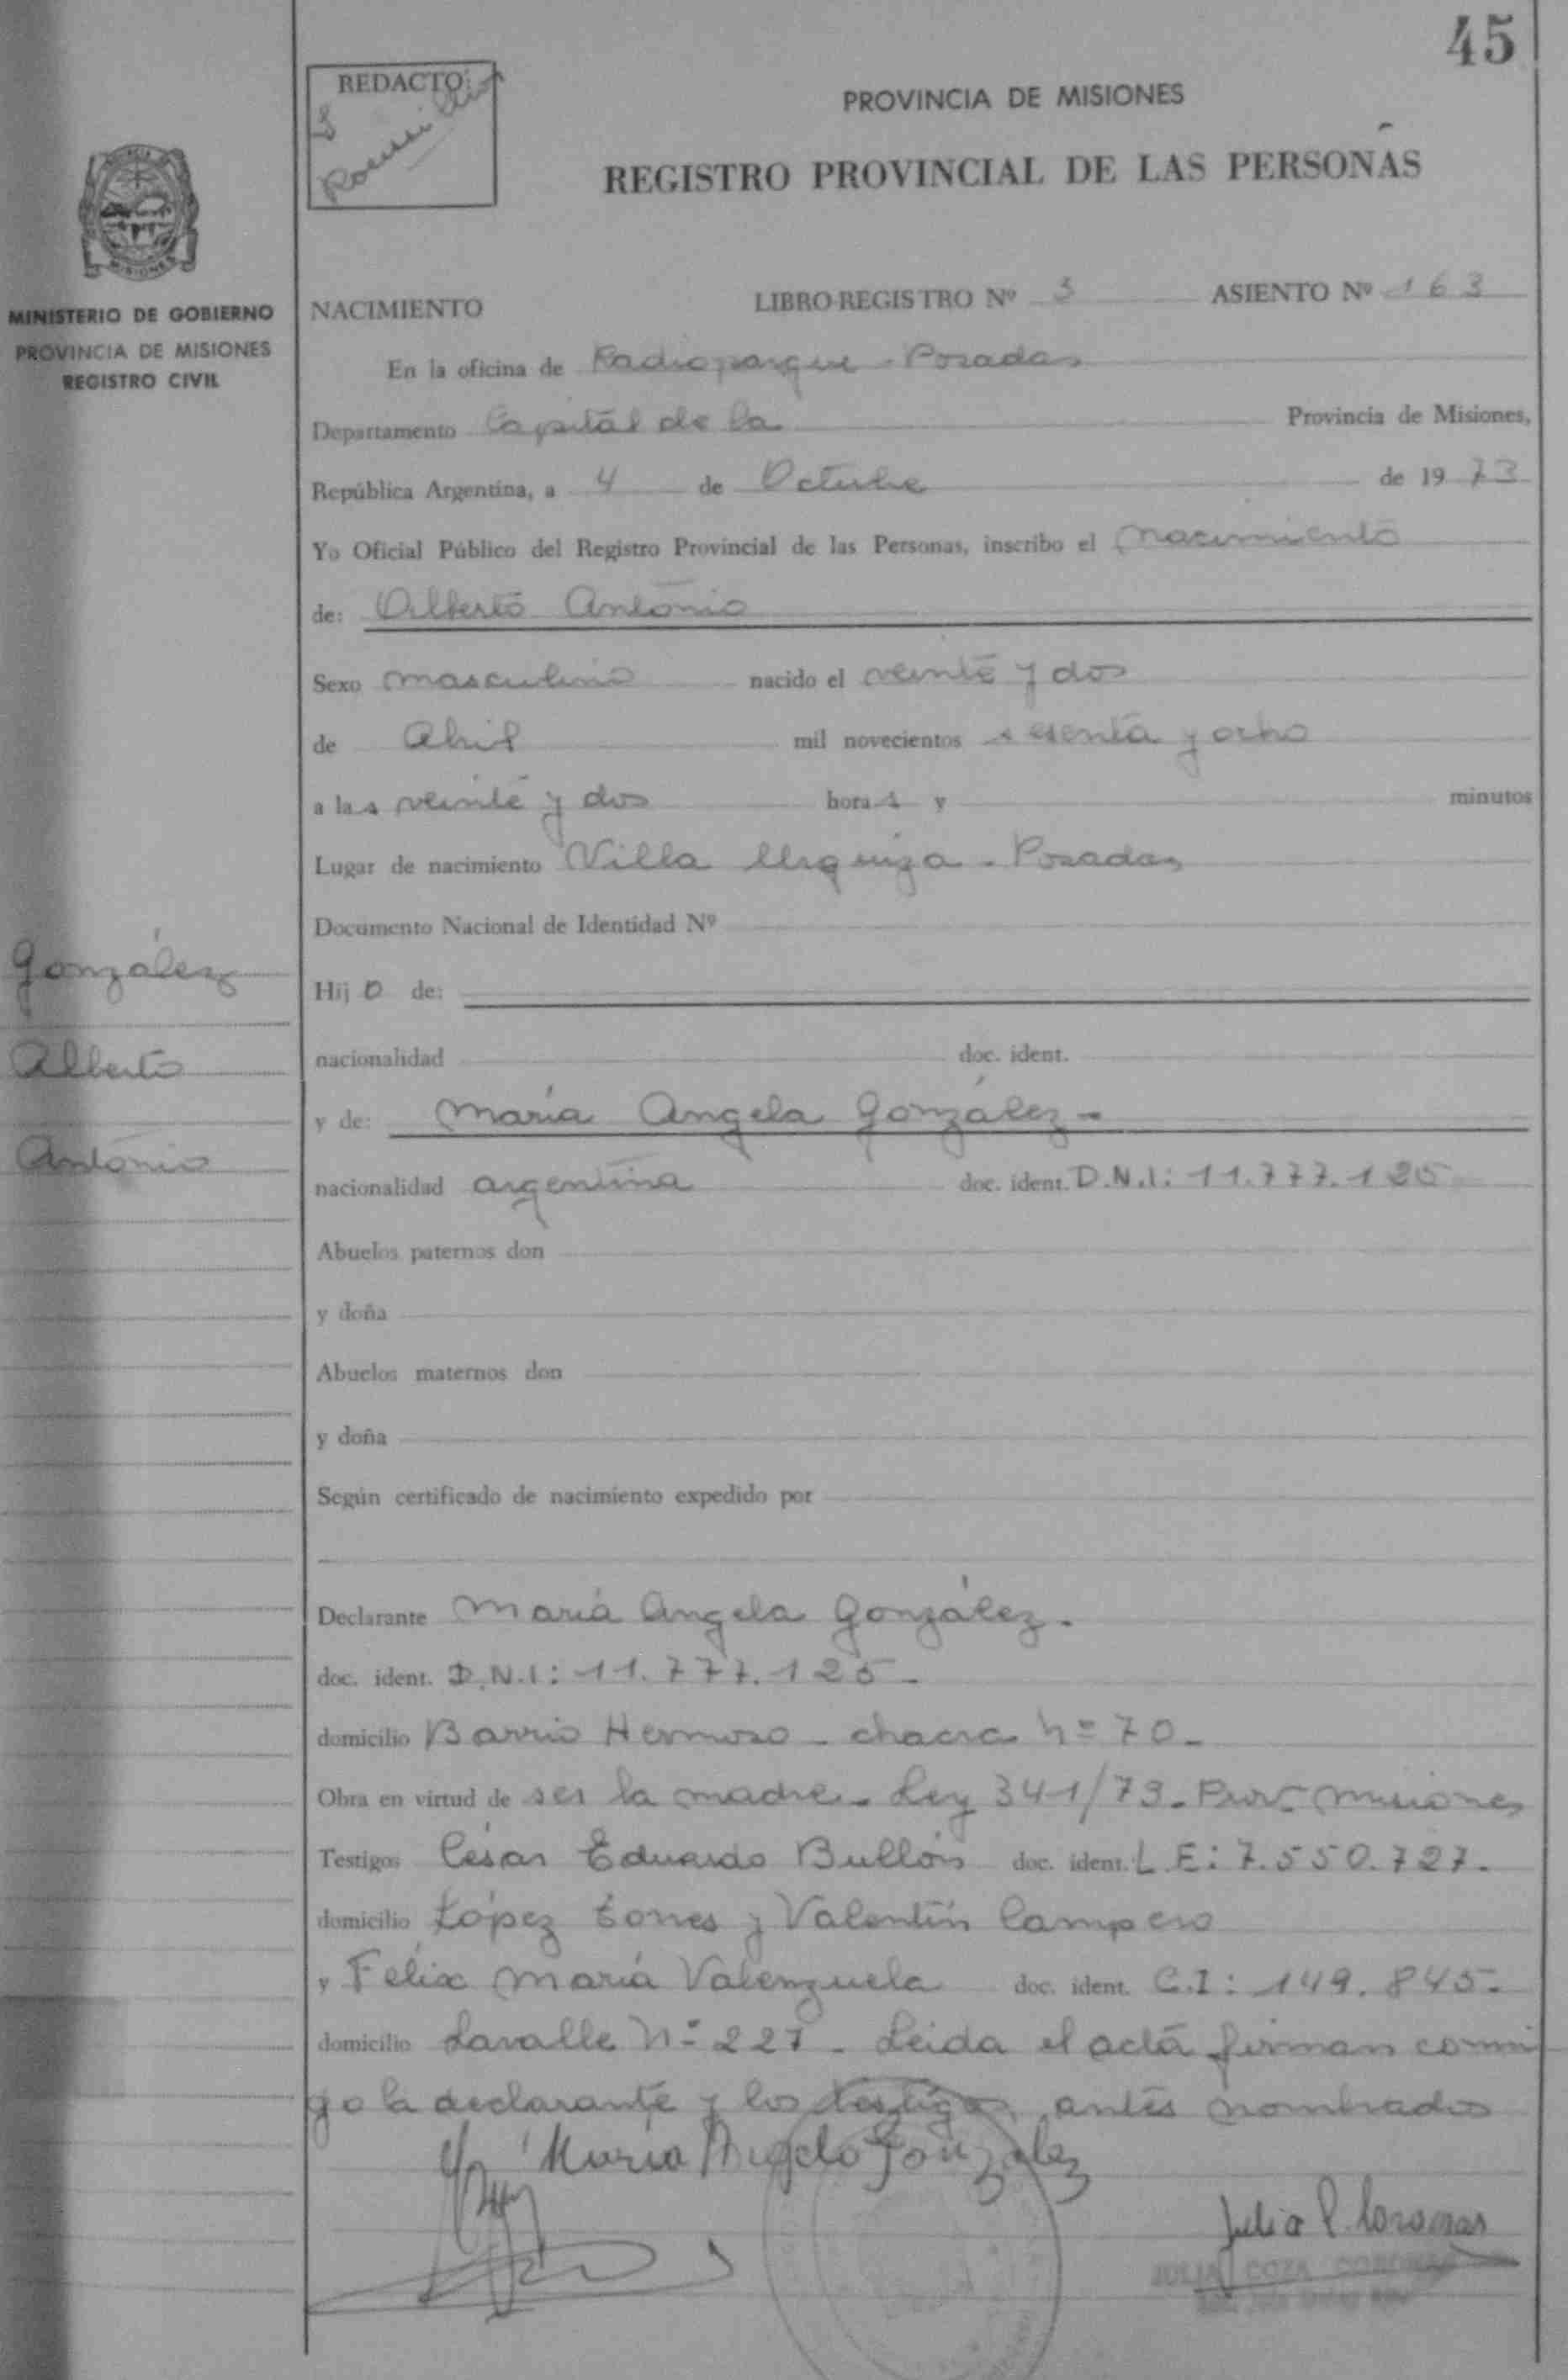 45
REDACTO:
PROVINCIA DE MISIONES
REGISTRO PROVINCIAL DE LAS PERSONAS
MISIONES
MINISTERIO DE GOBIERNO
PROVINCIA DE MISIONES
REGISTRO CIVIL
NACIMIENTO LIBRO-REGISTRO Nº 3 ASIENTO Nº 163
En la oficina de Radioparque - Posadas
Departamento Capital de la Provincia de Misiones,
República Argentina, a 4 de Octubre de 1973
Yo Oficial Público del Registro Provincial de las Personas, inscribo el nacimiento
de: Alberto Antonio
Sexo masculino nacido el veinte y dos
de Abril mil novecientos sesenta y ocho
a las veinte y dos horas y minutos
Lugar de nacimiento Villa Urquiza - Posadas
Documento Nacional de Identidad Nº
González
Hijo de:
Alberto
nacionalidad doc. ident.
y de: María Angela González -
Antonio
nacionalidad argentina doc. ident. D.N.I: 11.777.125
Abuelos paternos don
y doña
Abuelos maternos don
y doña
Según certificado de nacimiento expedido por
Declarante María Angela González.
doc. ident. D.N.I: 11.777.125-
domicilio Barrio Hermoso - chacra nº 70-
Obra en virtud de ser la madre - Ley 341/73- Prov- Misiones
Testigos César Eduardo Bullón doc. ident. L.E: 7.550.727.
domicilio López torres y Valentín Campero
y Félix María Valenzuela doc. ident. C.I: 149.845-
domicilio Lavalle nº 227 - Leida el acta firman conmi
go la declarante y los testigos antes nombrados
María Angela González
Julia C. Coronas
JULIA COZA CORONAS